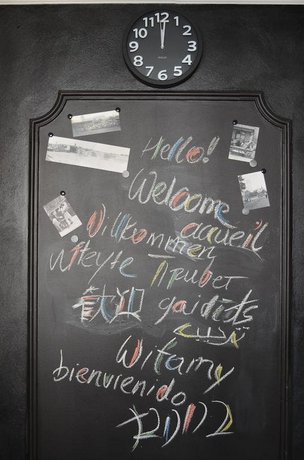 12
1
2
3
4
5
6
7
8
9
10
11
Hello!
Welcome
accueil
Willkommen
witeyte Привет
歓迎 gaidīts
ترحيب
Witamy
bienvienido